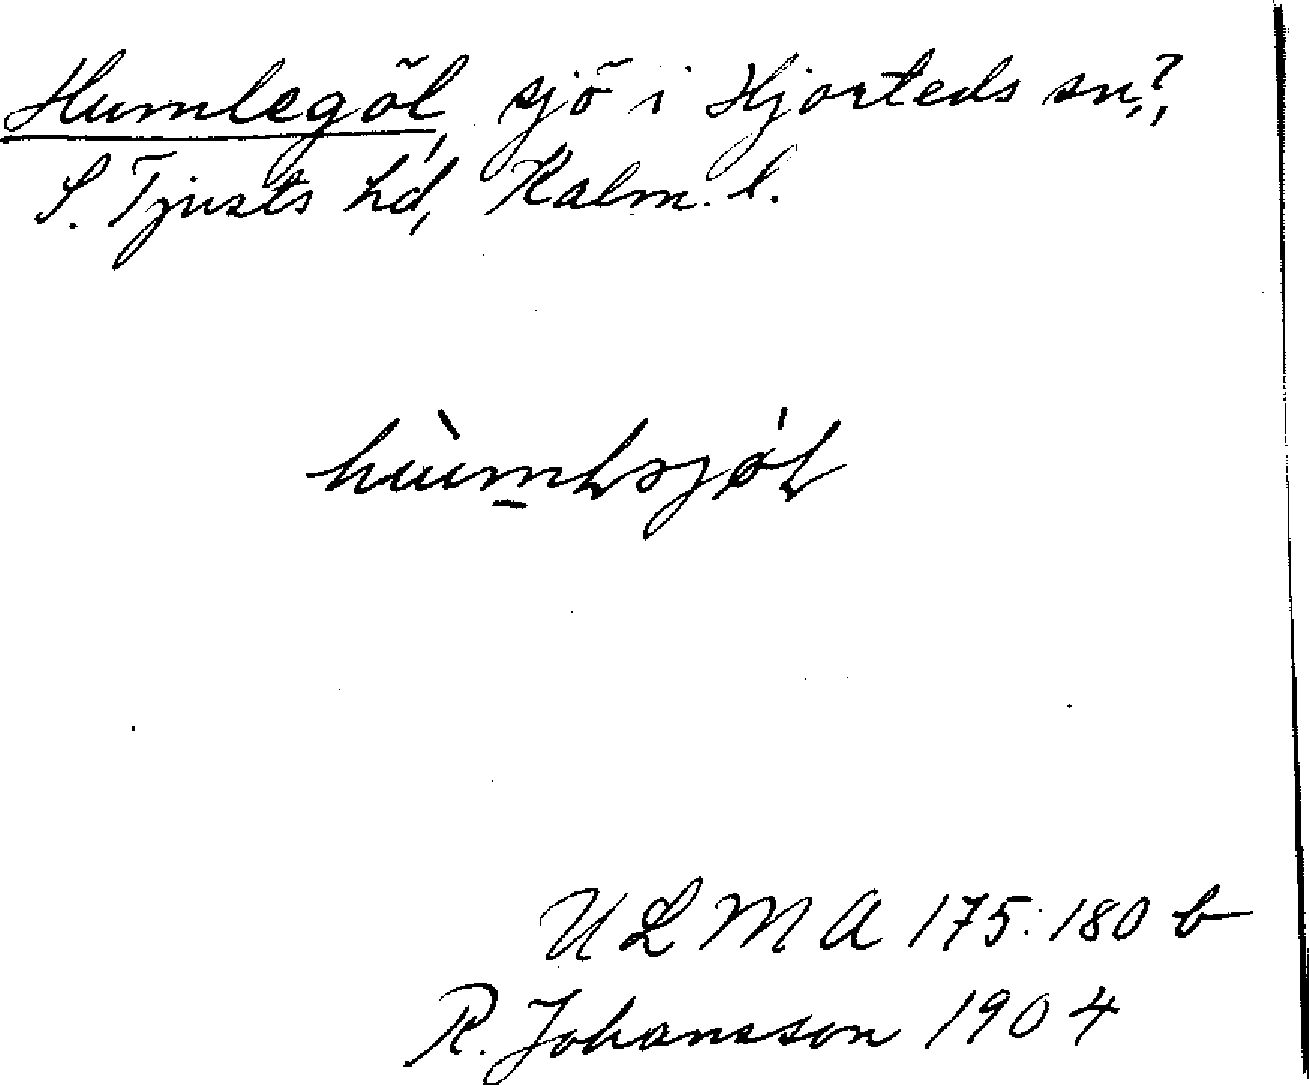 Humlegöl, sjö i Hjorteds sn?,
S. Tjusts hd, Kalm. l.
ULMA 175:180 b
R. Johansson 1904